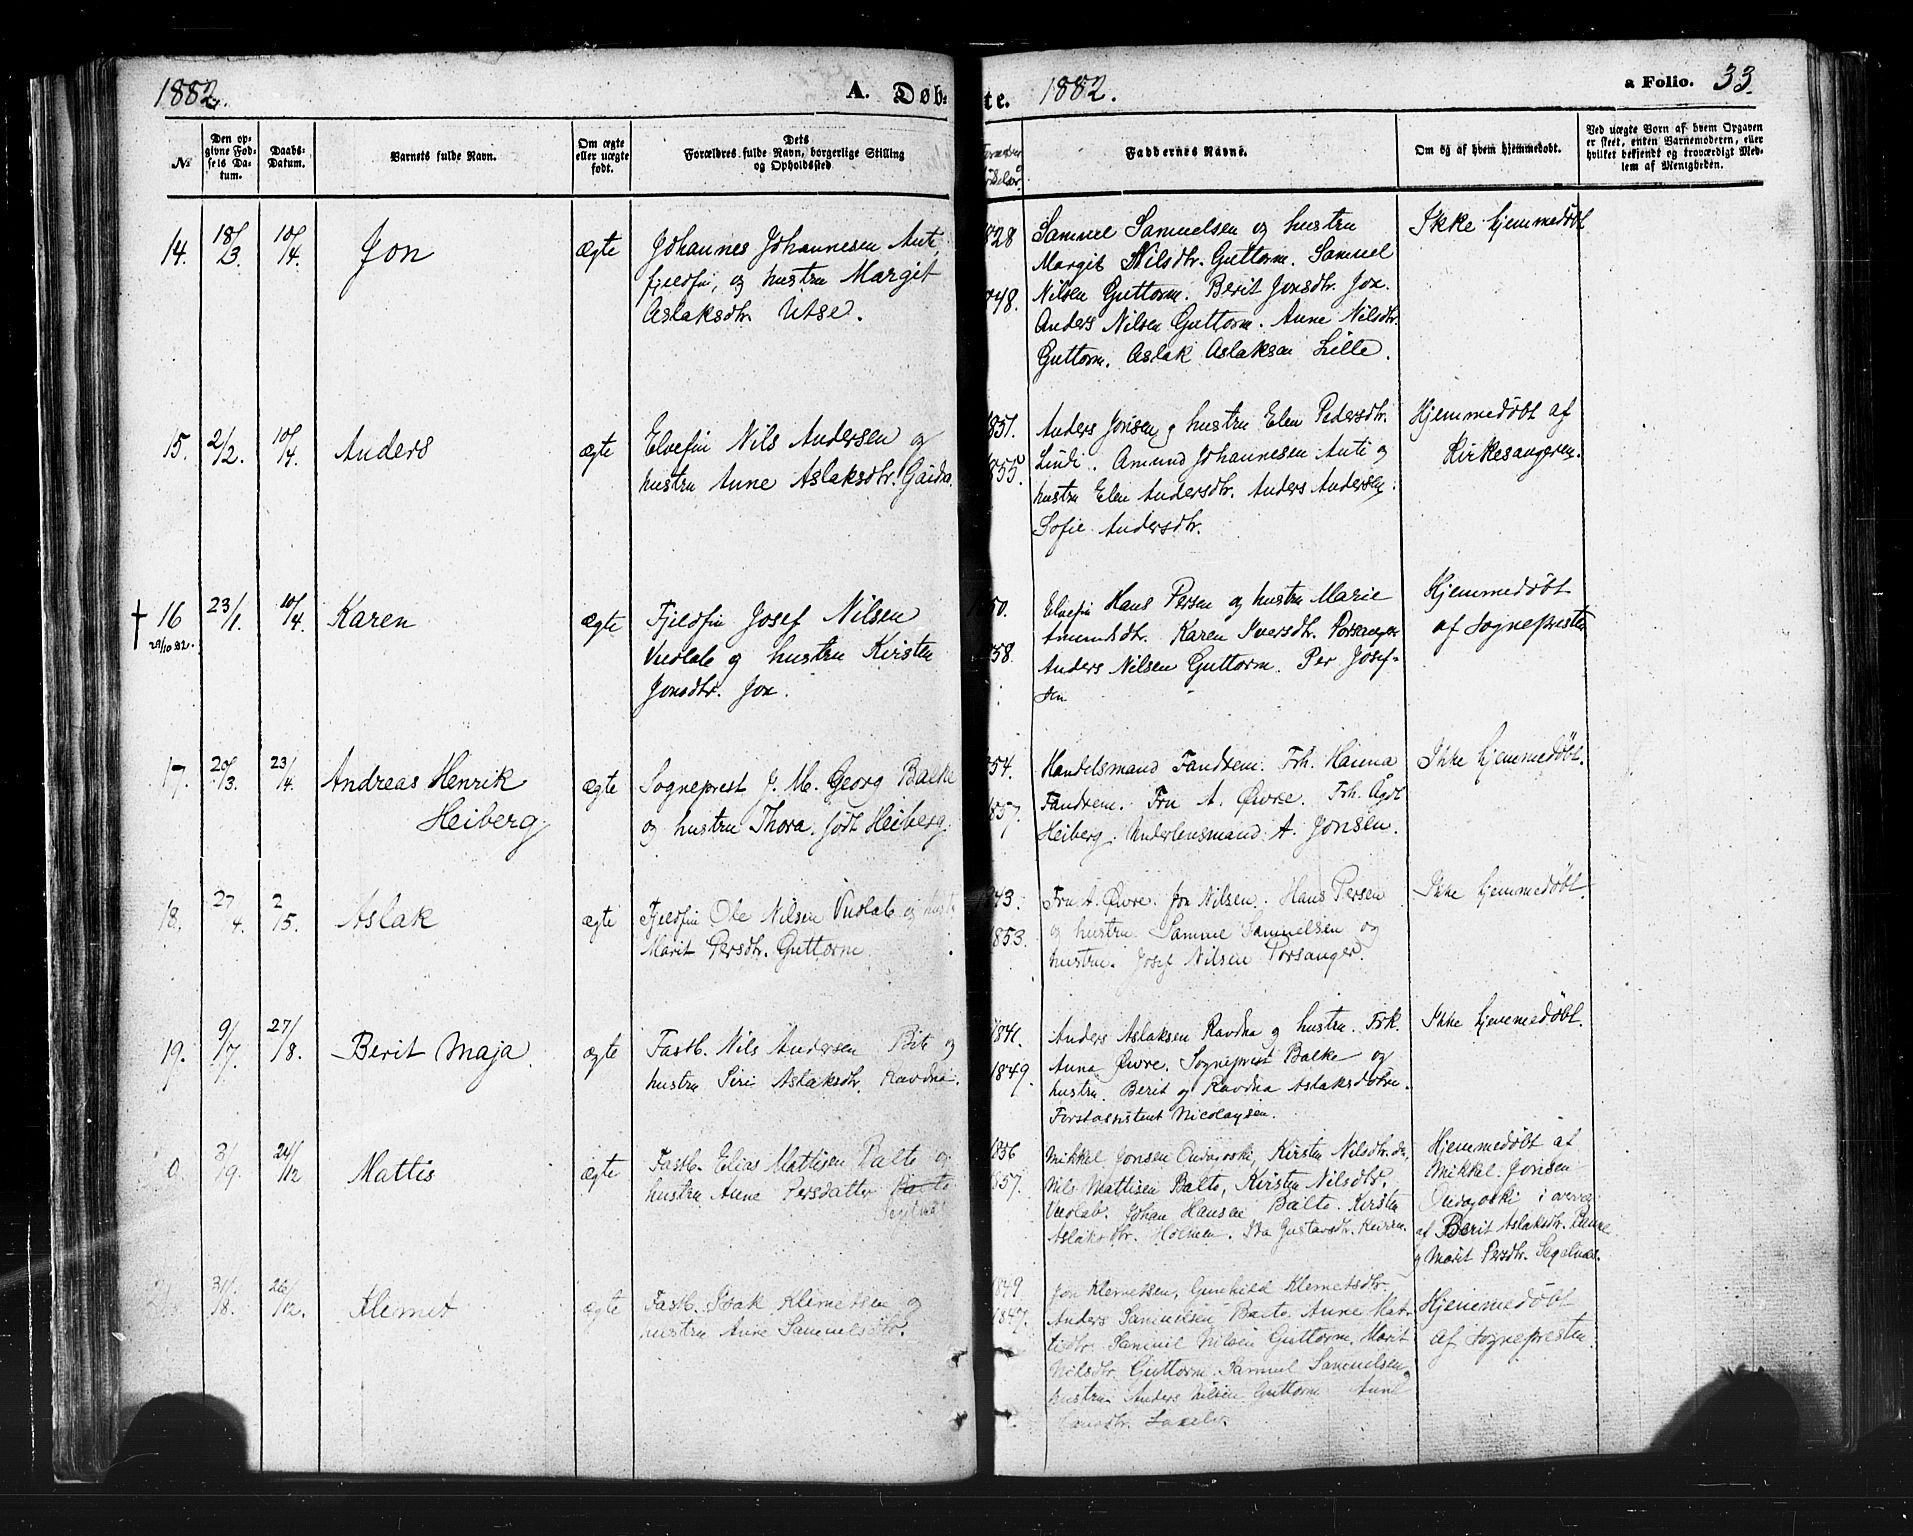 1882.
A. Døb-
te.
1882.
a Folio. 33.
№
Den op-
givne Fød-
sels Da-
tum.
Daabs-
Datum.
Barnets fulde Navn.
Om ægte
eller uægte
født.
Dets
Forældres fulde Navn, borgerlige Stilling
og Opholdssted.
Faddernes Navne.
Om og af hvem hjemmedøbt.
Ved uægte Børn af hvem Opgaven
er skeet, enten Barnemoderen, eller
hvilket bekjendt og troværdigt Med-
lem af Menigheden.
14.
18/3.
10/4.
Jon
ægte
Johannes Johannesen Anti
fjeldfin, og hustru Margit
Aslaksdtr. Utse.
1828
1848.
Samuel Samuelsen og hustru
Margit Nilsdtr. Guttorm. Samuel
Nilsen Guttorm. Berit Jonsdtr. Jox.
Anders Nilsen Guttorm. Anne Nilsdtr.
Guttorm. Aslak Aslaksen Lille.
Ikke hjemmedøbt
15.
2/2.
10/4.
Anders
ægte
Elvefin Nils Andersen og
hustru Anne Aslaksdtr. Gaidno.
1851.
1855.
Anders Jonsen og hustru Elen Pedersdtr.
Lindi. Amund Johannesen Anti og
hustru Elen Andersdtr. Anders Andersen
Sofie Andersdtr.
Hjemmedøbt af
Kirkesangeren.
† 16
29/10 82.
23/1.
10/4.
Karen
ægte
Fjeldfin Josef Nilsen
Vuolab og hustru Kirsten
Jonsdtr. Jox.
1850.
1858.
Elvefin Hans Persen og hustru Marie
Amundsdtr. Karen Iversdtr. Porsanger
Anders Nilsen Guttorm. Per Josef-
sen
Hjemmedøbt
af Sognepresten
17.
20/3.
23/4.
Andreas Henrik
Heiberg
ægte
Sogneprest J. M. Georg Balke
og hustru Thora, født Heiberg.
1854.
1857.
Handelsmand Fandrem. Frk. Hanna
Fandrem. Fru A. Øwre. Frk. Ågot
Heiberg. Underlensmand A. Jonsen.
Ikke hjemmedøbt.
18.
27/4.
2/5.
Aslak
ægte
Fjeldfin Ole Nilsen Vuolab og hustru
Marit Persdtr. Guttorm
1843.
1853.
Fru A. Øwre. Jon Nilsen. Hans Persen
og hustru. Samuel Samuelsen og
hustru. Josef Nilsen Porsanger.
Ikke hjemmedøbt
19.
9/7.
27/8.
Berit Maja
ægte
Fastb. Nils Andersen Biti og
hustru Siri Aslaksdtr. Ravdna.
1841.
1849.
Anders Aslaksen Ravdna og hustru. Frk.
Anna Øwre. Sogneprest Balke og
hustru. Berit og Ravdna Aslaksdøtre.
Forstassistent Nicolaysen.
Ikke hjemmedøbt.
0.
3/9.
24/12
Mattis
ægte
Fastb. Elias Mattisen Balto og
hustru Anne Persdatter Balto
Segelnæs
1856
1857.
Mikkel Jonsen Ondagoski, Kirsten Nilsdtr. do,
Nils Mattisen Balto, Kirsten Nilsdtr.
Vuolab. Johan Hansen Balto. Kirsten
Aslaksdtr. Holmen. Ida Gustavsdtr.
Hjemmedøbt af
Mikkel Jonsen
Ondagoski i overvær
af Berit Aslaksdtr.
og Marit Persdtr. Segelnæs.
31/8.
26/12.
Klemet
ægte
Fastb. Isak Klemetsen og
hustru Anne Samuelsdtr.
1849
1847.
Jon Klemetsen, Gunhild Klemetsdtr.
Anders Samuelsen Balto. Anne Mat-
tisdtr. Samuel Nilsen Guttorm. Marit
Nilsdtr. Guttorm. Samuel Samuelsen,
hustru. Anders Nilsen Guttorm Anne
Hjemmedøbt
af Sognepresten.